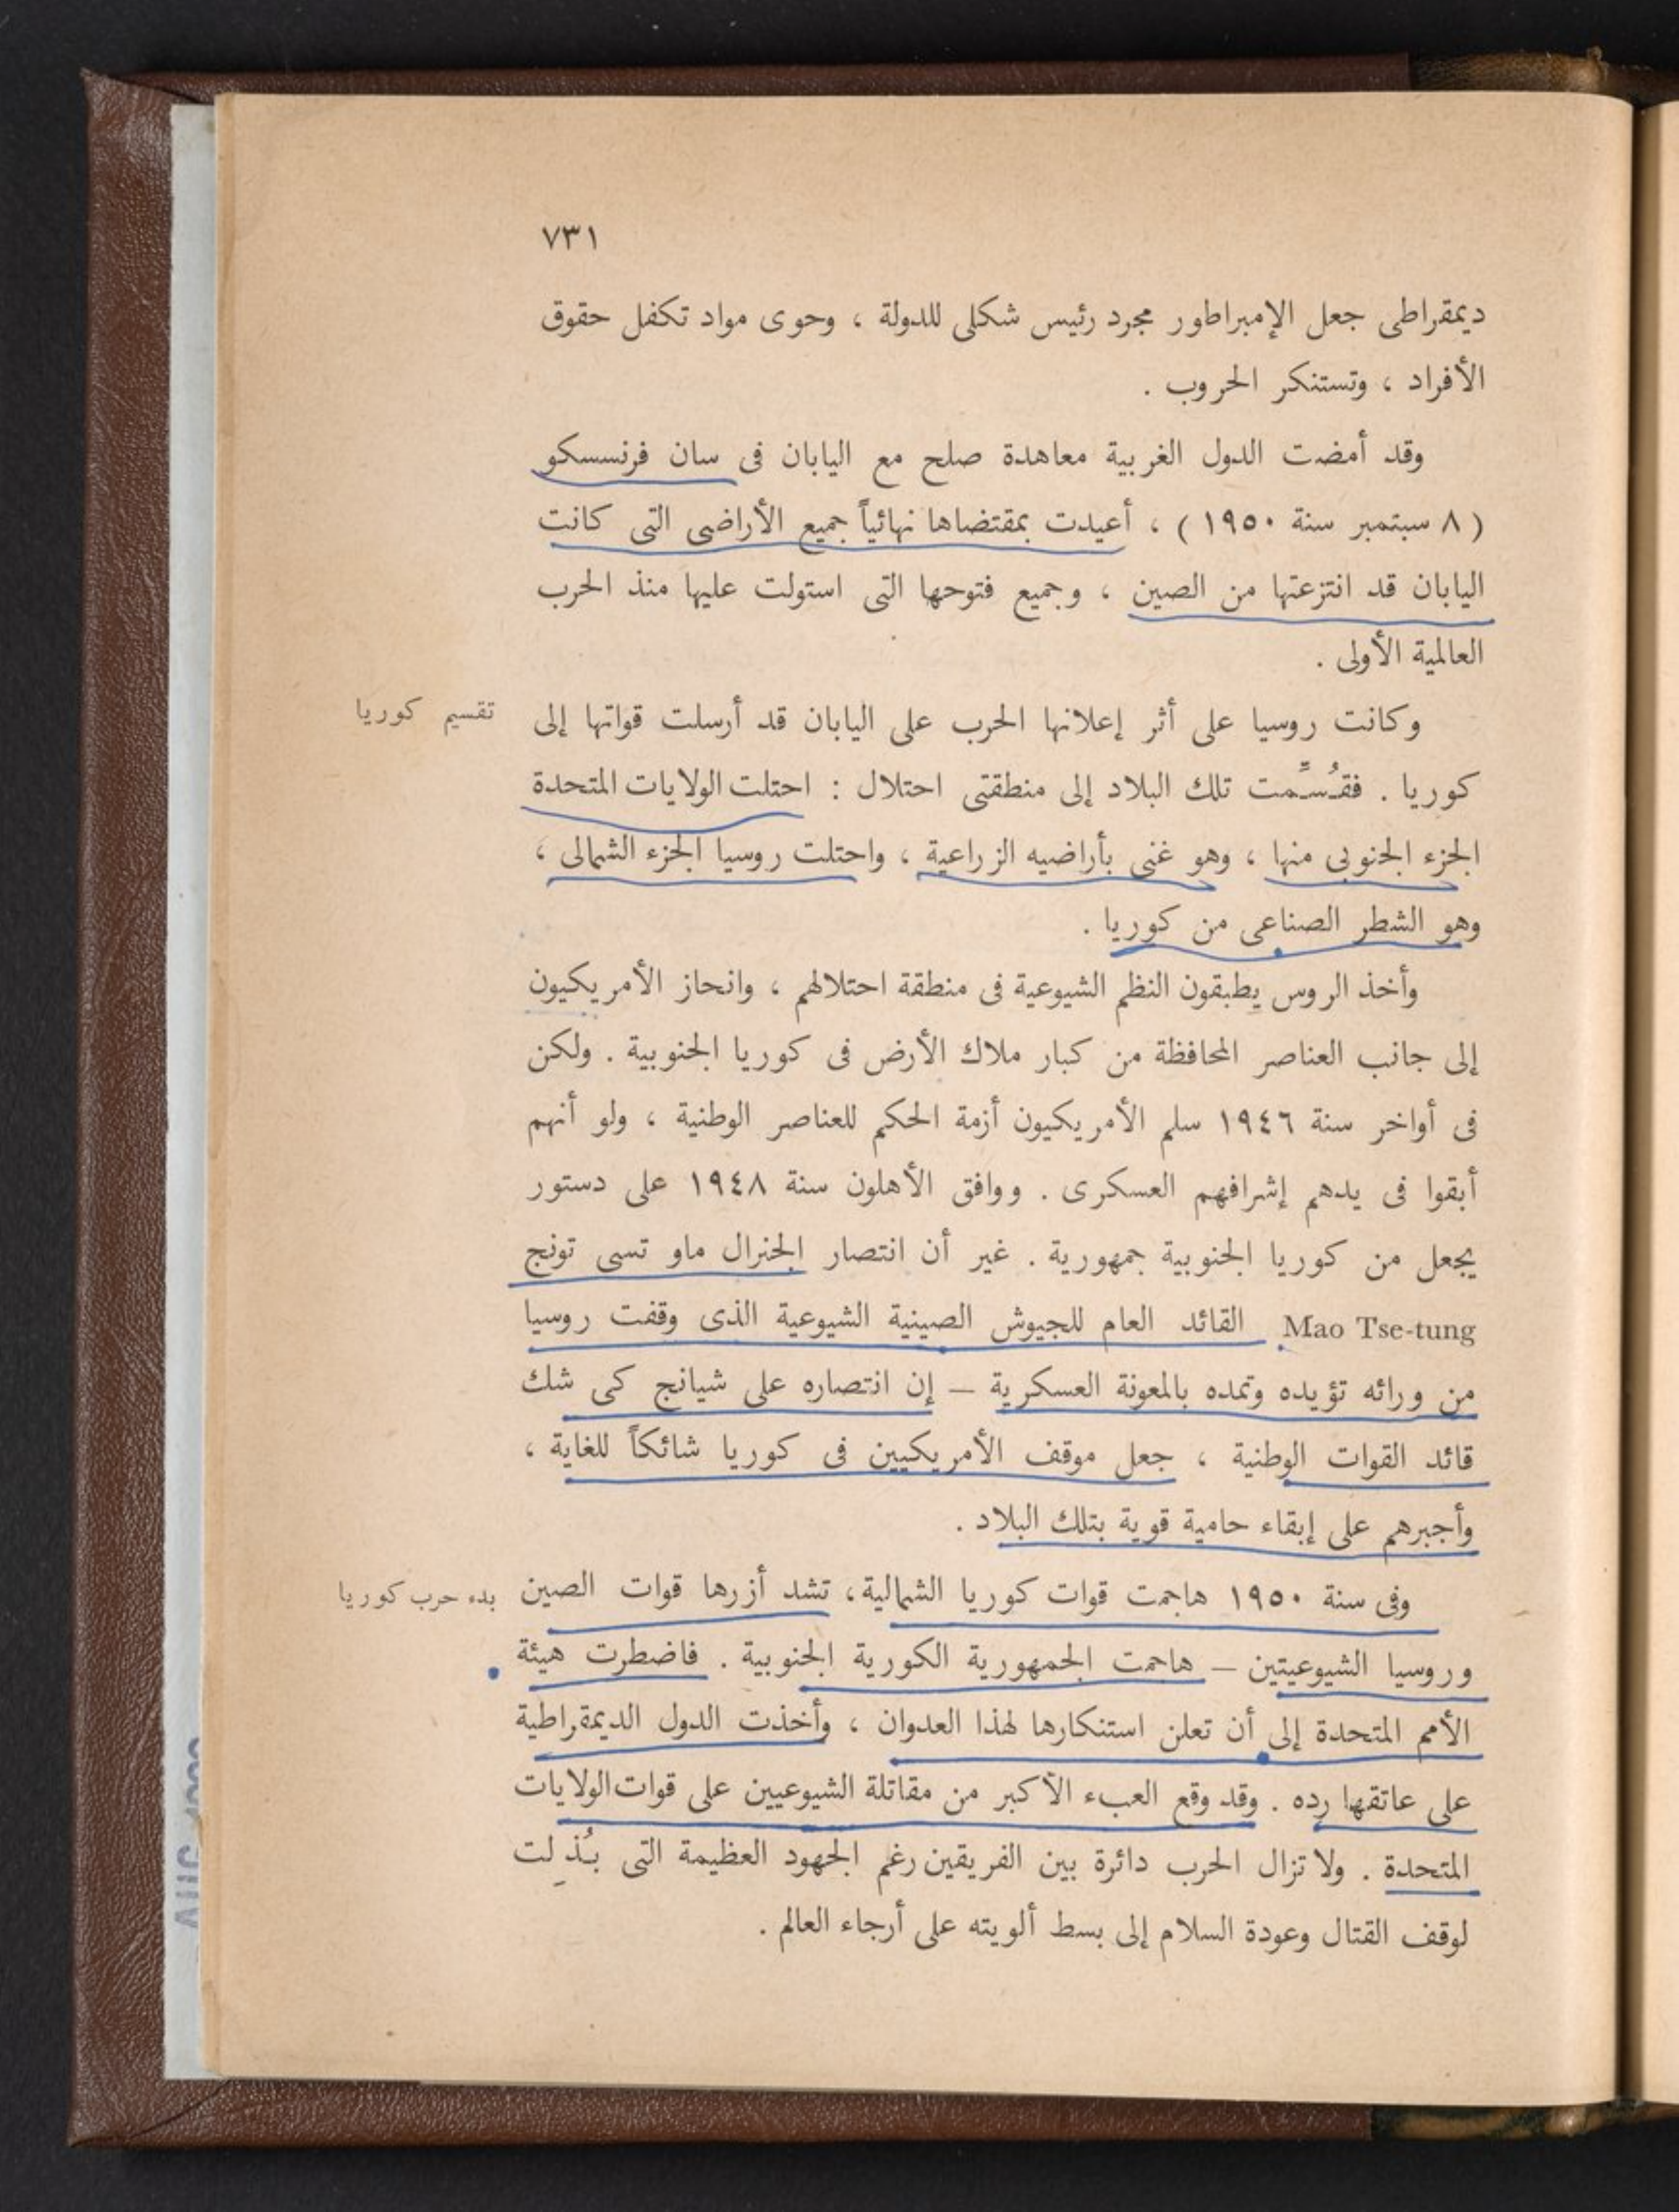 ٧٣١
ديمقراطى جعل الإمبراطور مجرد رئيس شكلى للدولة ، وحوى مواد تكفل حقوق
الأفراد ، وتستنكر الحروب .
وقد أمضت الدول الغربية معاهدة صلح مع اليابان فى سان فرنسسكو
( ٨ سبتمبر سنة ١٩٥٠ ) ، أعيدت بمقتضاها نهائياً جميع الأراضى التى كانت
اليابان قد انتزعتها من الصين ، وجميع فتوحها التى استولت عليها منذ الحرب
العالمية الأولى .
تقسيم كوريا
وكانت روسيا على أثر إعلانها الحرب على اليابان قد أرسلت قواتها إلى
كوريا . فقُسِّمت تلك البلاد إلى منطقتى احتلال : احتلت الولايات المتحدة
الجزء الجنوبى منها ، وهو غنى بأراضيه الزراعية ، واحتلت روسيا الجزء الشمالى ،
وهو الشطر الصناعى من كوريا .
وأخذ الروس يطبقون النظم الشيوعية فى منطقة احتلالهم ، وانحاز الأمريكيون
إلى جانب العناصر المحافظة من كبار ملاك الأرض فى كوريا الجنوبية . ولكن
فى أواخر سنة ١٩٤٦ سلم الأمريكيون أزمة الحكم للعناصر الوطنية ، ولو أنهم
أبقوا فى يدهم إشرافهم العسكرى . ووافق الأهلون سنة ١٩٤٨ على دستور
يجعل من كوريا الجنوبية جمهورية . غير أن انتصار الجنرال ماو تسى تونج
Mao Tse-tung القائد العام للجيوش الصينية الشيوعية الذى وقفت روسيا
من ورائه تؤيده وتمده بالمعونة العسكرية – إن انتصاره على شيانج كى شك
قائد القوات الوطنية ، جعل موقف الأمريكيين فى كوريا شائكاً للغاية ،
وأجبرهم على إبقاء حامية قوية بتلك البلاد .
بدء حرب كوريا
وفى سنة ١٩٥٠ هاجمت قوات كوريا الشمالية ، تشد أزرها قوات الصين
وروسيا الشيوعيتين – هاجمت الجمهورية الكورية الجنوبية . فاضطرت هيئة
الأمم المتحدة إلى أن تعلن استنكارها لهذا العدوان ، وأخذت الدول الديمقراطية
على عاتقها رده . وقد وقع العبء الأكبر من مقاتلة الشيوعيين على قوات الولايات
المتحدة . ولا تزال الحرب دائرة بين الفريقين رغم الجهود العظيمة التى بُذِلت
لوقف القتال وعودة السلام إلى بسط ألويته على أرجاء العالم .